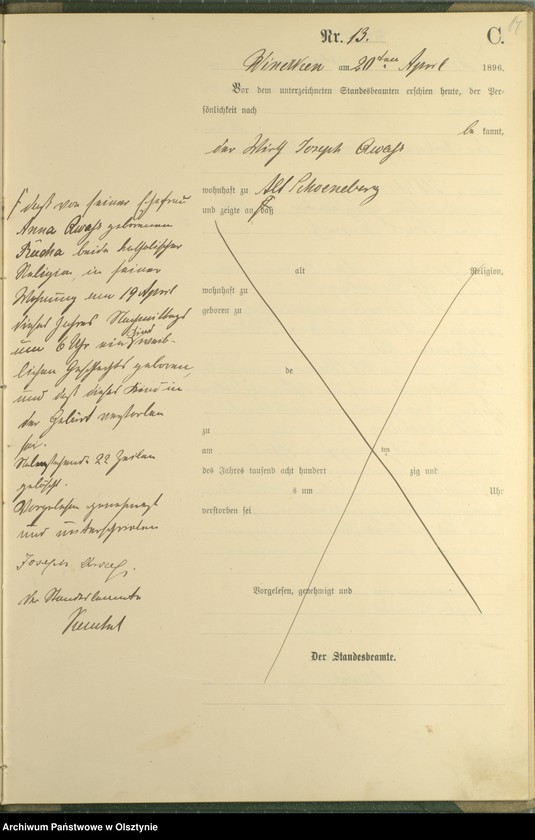 Nr. 13.
C.
am 20ten April 1896.
Vor dem unterzeichneten Standesbeamten erschien heute, der Per-
sönlichkeit nach
be kannt,
der Wirth Joseph
wohnhaft zu Alt Schoeneberg
und zeigte an, daß
alt Religion,
wohnhaft zu
geboren zu
de
zu
am ten
des Jahres tausend acht hundert zig und
s um Uhr
verstorben sei
Vorgelesen, genehmigt und
Der Standesbeamte.
daß von seiner Ehefrau
Anna geborenen
beide katholischer
Religion, in seiner
Wohnung am 19 April
dieses Jahres Nachmittags
um 6 Uhr ein Kind weib-
lichen Geschlechts geboren,
und daß dieses Kind in
der Geburt verstorben
sei.
22 Zeilen
gelöscht.
Vorgelesen genehmigt
und unterschrieben
Joseph
Der Standesbeamte
Archiwum Państwowe w Olsztynie